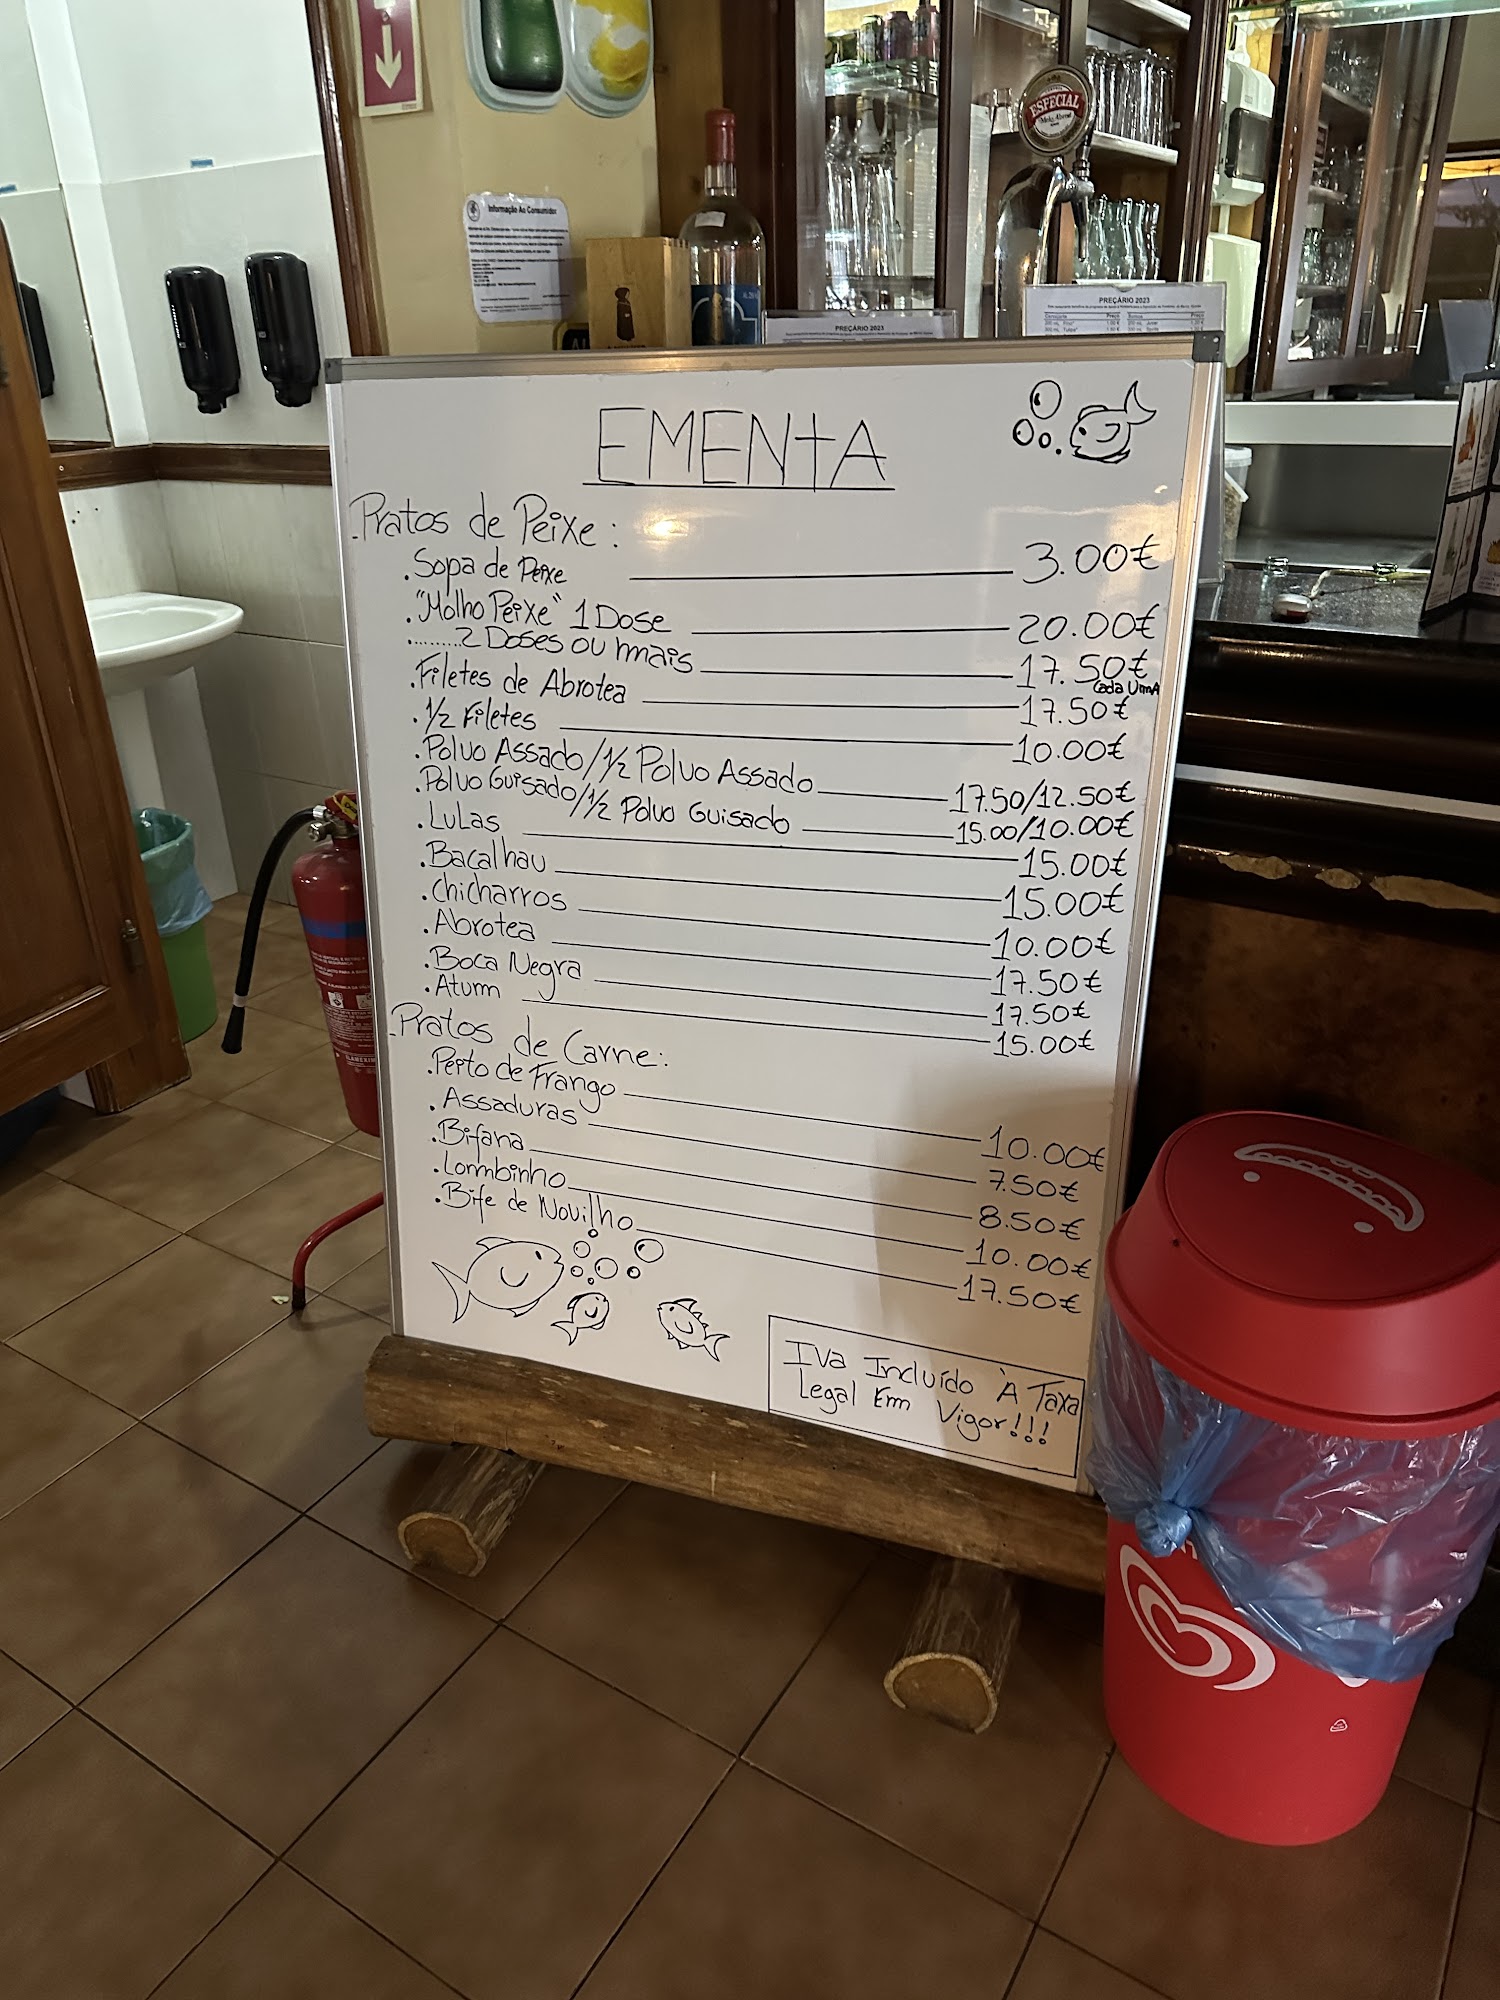 Informação Ao Consumidor
ESPECIAL
PREÇÁRIO 2023
PREÇÁRIO 2023
EMENTA
-Pratos de Peixe:
.Sopa de Peixe 3.00€
."Molho Peixe" 1 Dose 20.00€
.........2 Doses ou mais 17.50€
Cada Uma
.Filetes de Abrotea 17.50€
.1/2 Filetes 10.00€
.Polvo Assado/1/2 Polvo Assado 17.50/12.50€
.Polvo Guisado/1/2 Polvo Guisado 15.00/10.00€
.Lulas 15.00€
.Bacalhau 15.00€
.Chicharros 10.00€
.Abrotea 17.50€
.Boca Negra 17.50€
.Atum 15.00€
-Pratos de Carne:
.Peito de Frango 10.00€
.Assaduras 7.50€
.Bifana 8.50€
.Lombinho 10.00€
.Bife de Novilho 17.50€
IVa Incluído À Taxa
Legal Em Vigor!!!